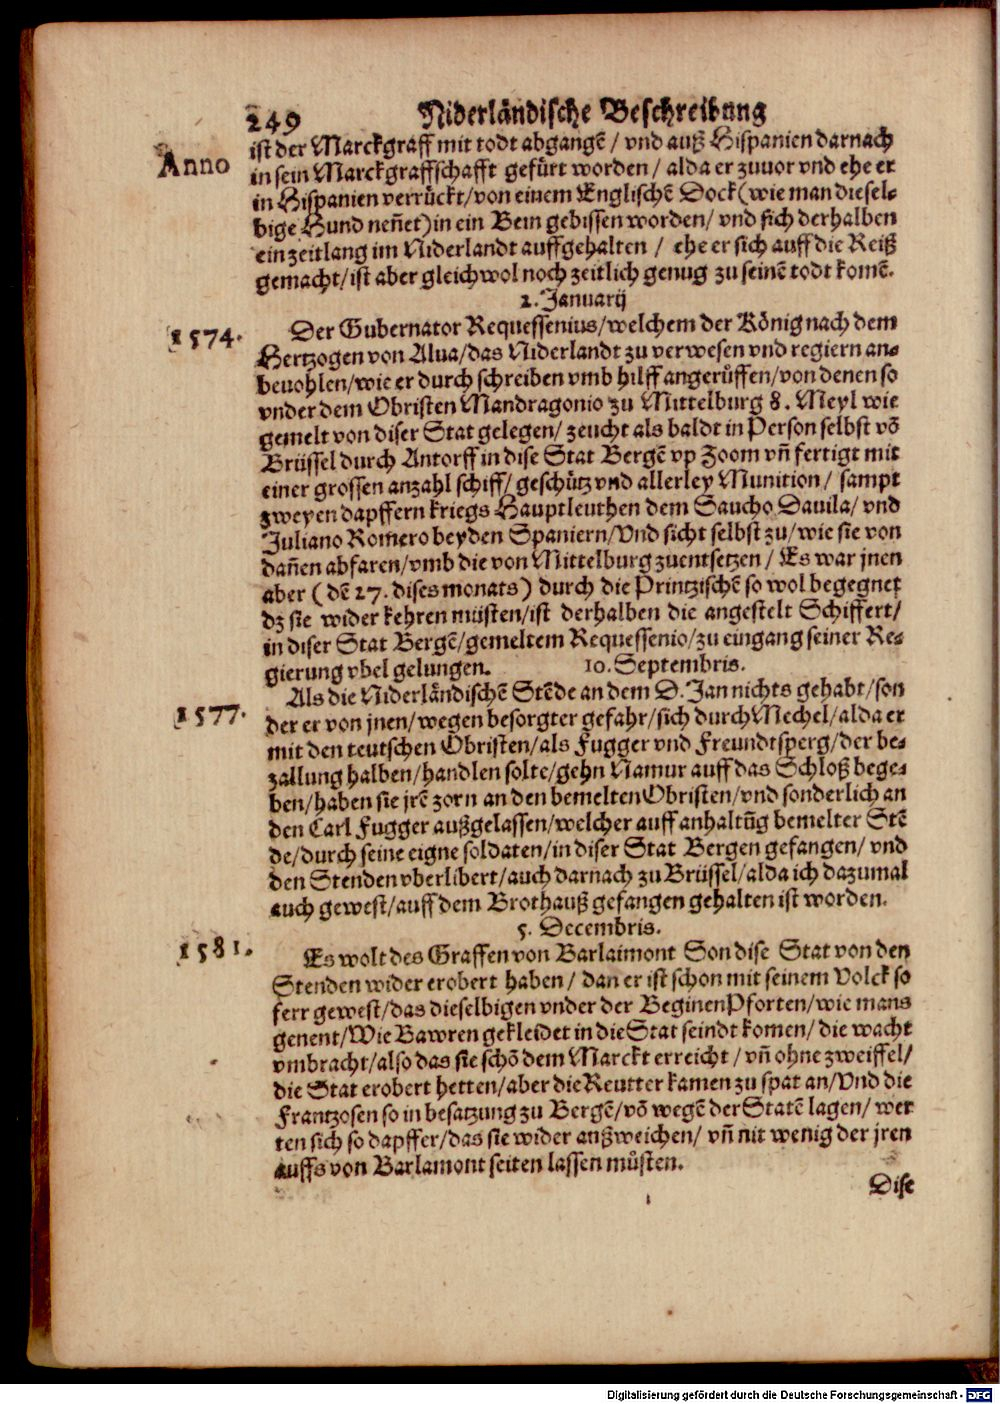 249 Niderländische Beschreibung
Anno
ist der Marckgraff mit todt abgangẽ / vnd auß Hispanien darnach
in sein Marckgraffschafft gefürt worden / alda er zuuor vnd ehe er
in Hispanien verrückt/von einem Englischẽ Dock(wie man diesel-
bige Hund neñet)in ein Bein gebissen worden/ vnd sich derhalben
ein zeitlang im Niderlandt auffgehalten / ehe er sich auff die Reiß
gemacht/ist aber gleichwol noch zeitlich genug zu seinẽ todt komẽ.
2. Januarij
1574.
Der Gubernator Requessenius/welchem der König nach dem
Hertzogen von Alua/das Niderlandt zu verwesen vnd regiern an-
beuohlen/wie er durch schreiben vmb hilff angerůffen/von denen so
vnder dem Obristen Mandragonio zu Mittelburg 8. Meyl wie
gemelt von diser Stat gelegen/ zeucht als baldt in Person selbst võ
Brüssel durch Antorff in dise Stat Bergẽ vp Zoom vñ fertigt mit
einer grossen anzahl schiff/ geschütz vnd allerley Munition / sampt
zweyen dapffern kriegs Hauptleuthen dem Saucho Dauila/ vnd
Juliano Romero beyden Spaniern/Vnd sicht selbst zu/wie sie von
dañen abfaren/vmb die von Mittelburg zuentsetzen / Es war jnen
aber ( dẽ 27. dises monats) durch die Printzischẽ so wol begegnet
dz sie wider kehren müsten/ist derhalben die angestelt Schiffert/
in diser Stat Bergẽ/gemeltem Requessenio/zu eingang seiner Re-
gierung vbel gelungen. 10. Septembris.
1577.
Als die Niderländischẽ Stẽde an dem D. Jan nichts gehabt/son
der er von jnen/wegen besorgter gefahr/sich durch Mechel/alda er
mit den teutschen Obristen/als Fugger vnd Freundtsperg/der be-
zallung halben/handlen solte/gehn Namur auff das Schloß bege-
ben/haben sie jrẽ zorn an den bemelten Obristen/vnd sonderlich an
den Carl Fugger außgelassen/welcher auff anhaltũg bemelter Stẽ
de/durch seine eigne soldaten/in diser Stat Bergen gefangen/ vnd
den Stenden vberlibert/auch darnach zu Brüssel/alda ich dazumal
auch gewest/auff dem Brothauß gefangen gehalten ist worden.
5. Decembris.
1581.
Es wolt des Graffen von Barlaimont Son dise Stat von den
Stenden wider erobert haben / dan er ist schon mit seinem Volck so
ferr gewest/das dieselbigen vnder der Beginen Pforten/wie mans
genent/Wie Bawren gekleidet in die Stat seindt komen/ die wacht
vmbracht/also das sie schõ dem Marckt erreicht / vñ ohne zweiffel/
die Stat erobert hetten/aber die Reutter kamen zu spat an/Vnd die
Frantzosen so in besatzung zu Bergẽ/võ wegẽ der Statẽ lagen/ wer
ten sich so dapffer/das sie wider anßweichen/ vñ nit wenig der jren
auffs von Barlamont seiten lassen můsten.
Dise
Digitalisierung gefördert durch die Deutsche Forschungsgemeinschaft - DFG